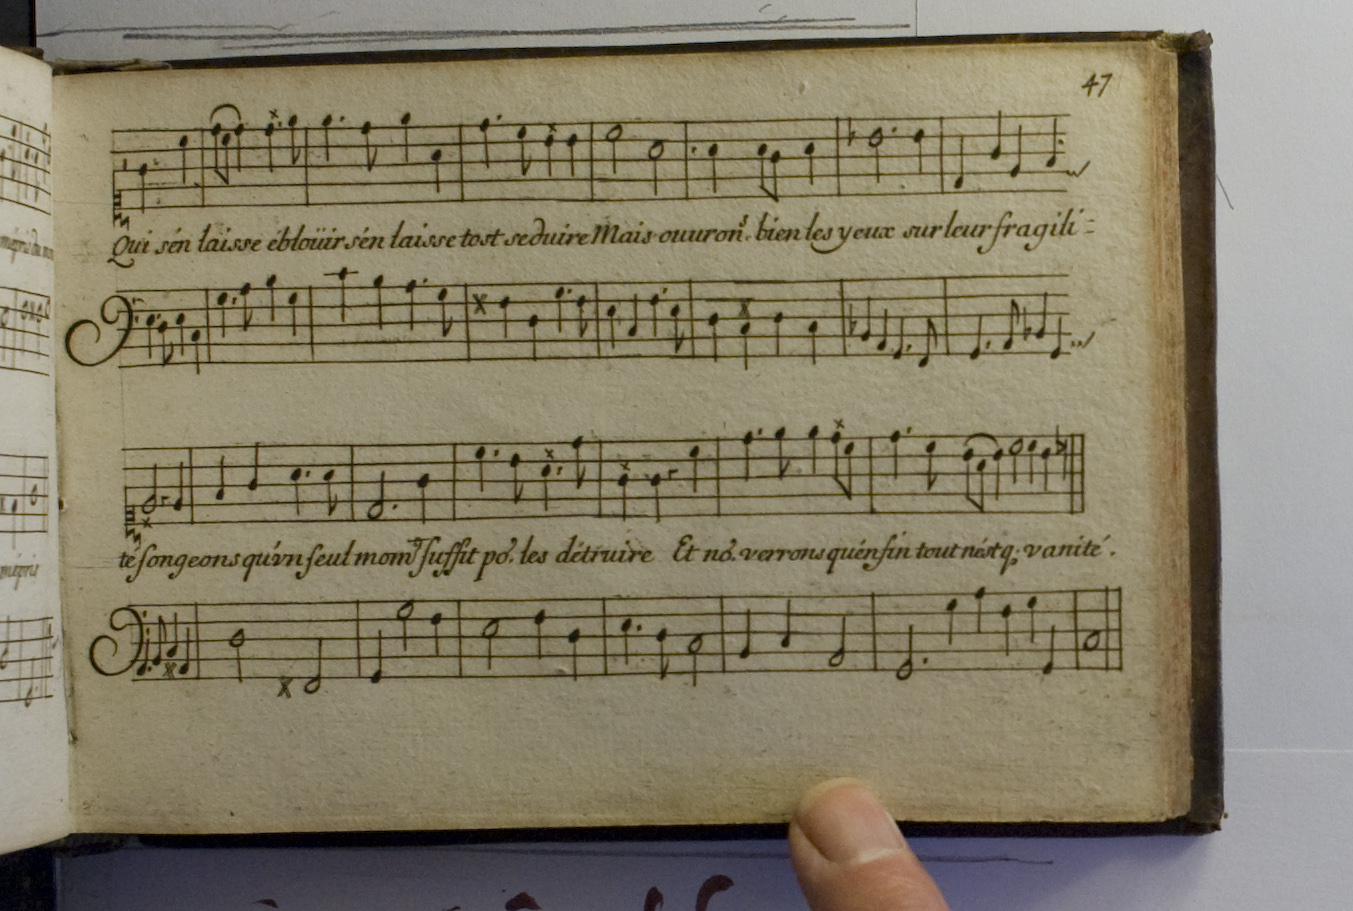 47
Qui s'en laisse ébloüir s'en laisse tost seduire Mais ouurons. bien les yeux sur leur fragili=
té songeons qu'vn seul mom.t suffit po.r les détruire Et no.s verrons qu'enfin tout n'est q; vanité.
mépris du
mépris